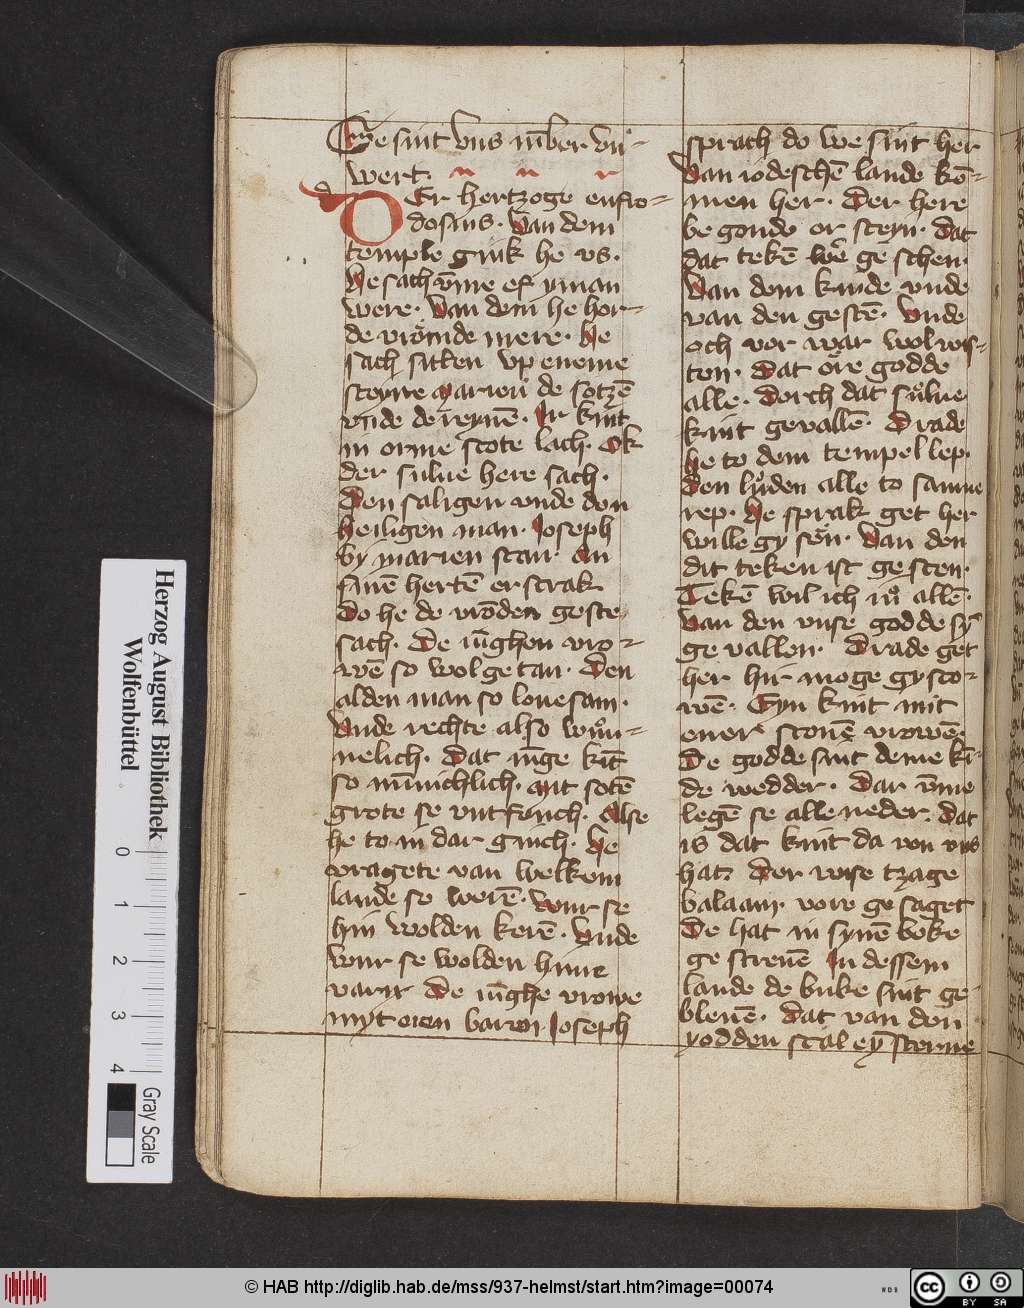 Gye sint vns ūmber vn-
wert.
DEr hertzoge eufro-
dosius. Van dem
temple gink he vs.
He sach v̄me ef yman
were. Van dem he hor-
de vrömde mere. He
sach sitten vp eneme
steyne Marien de sotzē
vnde de reynē. Ir kint
in orme scote lach. Ok
der sulue here sach.
Den saligen vnde den
heiligen man. Joseph
by marien stan. An
sinē hertē erscrak
Do he de vrōden geste
sach. De iūghen vro-
wē so wolgetan. Den
alden man so louesam.
Vnde rechte also wün-
nelich. Dat iūge kīt
so mīnichlich. Mit sotē
grote se vntfinch. Alse
he to in dar ginch. He
vragete van welkem
lande se werē. Wur se
hin wolden kerē. Vnde
wur se wolden hinne
varn De iūghe vrowe
myt eren baren Joseph
sprach do we sint her
Van iodeschē lande kō-
men her. Der here
be gonde or steyn. Dat
dat tekē wēr ge schen.
Van dem kinde vnde
van den gestē. Vnde
och vor war wol wis-
ten. Dat öre godde
alle. Dorch dat sulue
kint gevallē. Drade
he to dem tempel lep.
Den lüden alle to samne
rep. He sprak get her
wille gy sen. Van den
dit teken ist gesten.
Tekē wil ich iü allē.
Van den vnse godde sȳ
ge vallen. Drade get
her hir moge gy sco-
wē. Eyn kint mit
ener sconē vrowē.
De godde sint deme kī-
de wedder. Dar v̄me
legē se alle neder. Dat
is dat kint da von vns
hat. Der wise tzage
balaam. vore ge saget
De hat in synē boke
ge screuē In dessem
lande de buke sint ge-
bleuē. Dat van den
yodden scal eȳ sterne
Herzog August Bibliothek
Wolfenbüttel
0 1 2 3 4
Gray Scale
© HAB http://diglib.hab.de/mss/937-helmst/start.htm?image=00074
WDB
cc BY SA